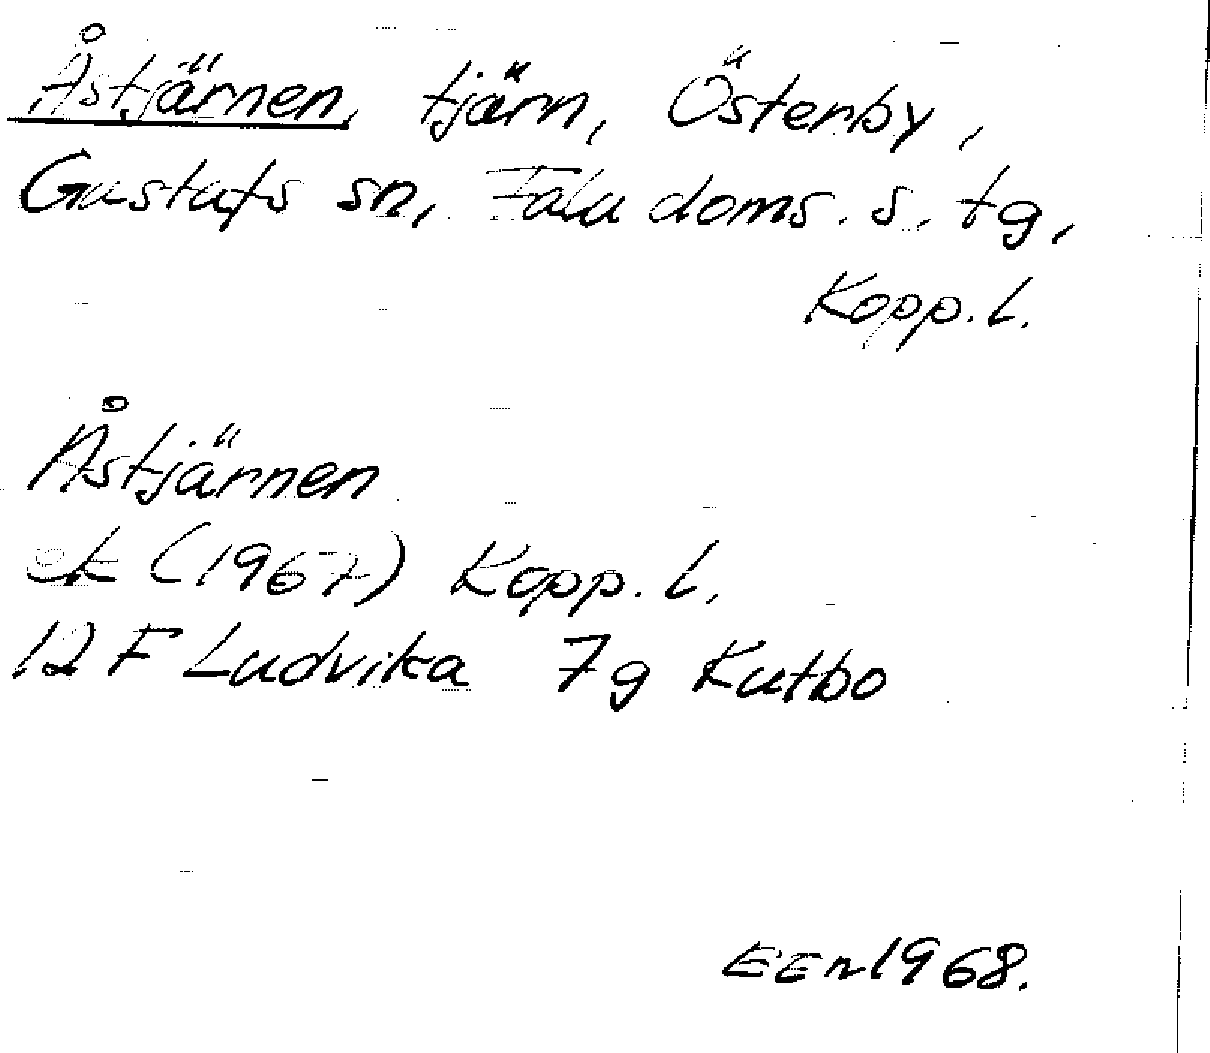 Åstjärnen, tjärn, Österby,
Gustafs sn, Falu doms. s. tg,
Kopp. l.
Åstjärnen
ek (1967) Kopp. l.
12 F Ludvika 7g Kutbo
EEn 1968.